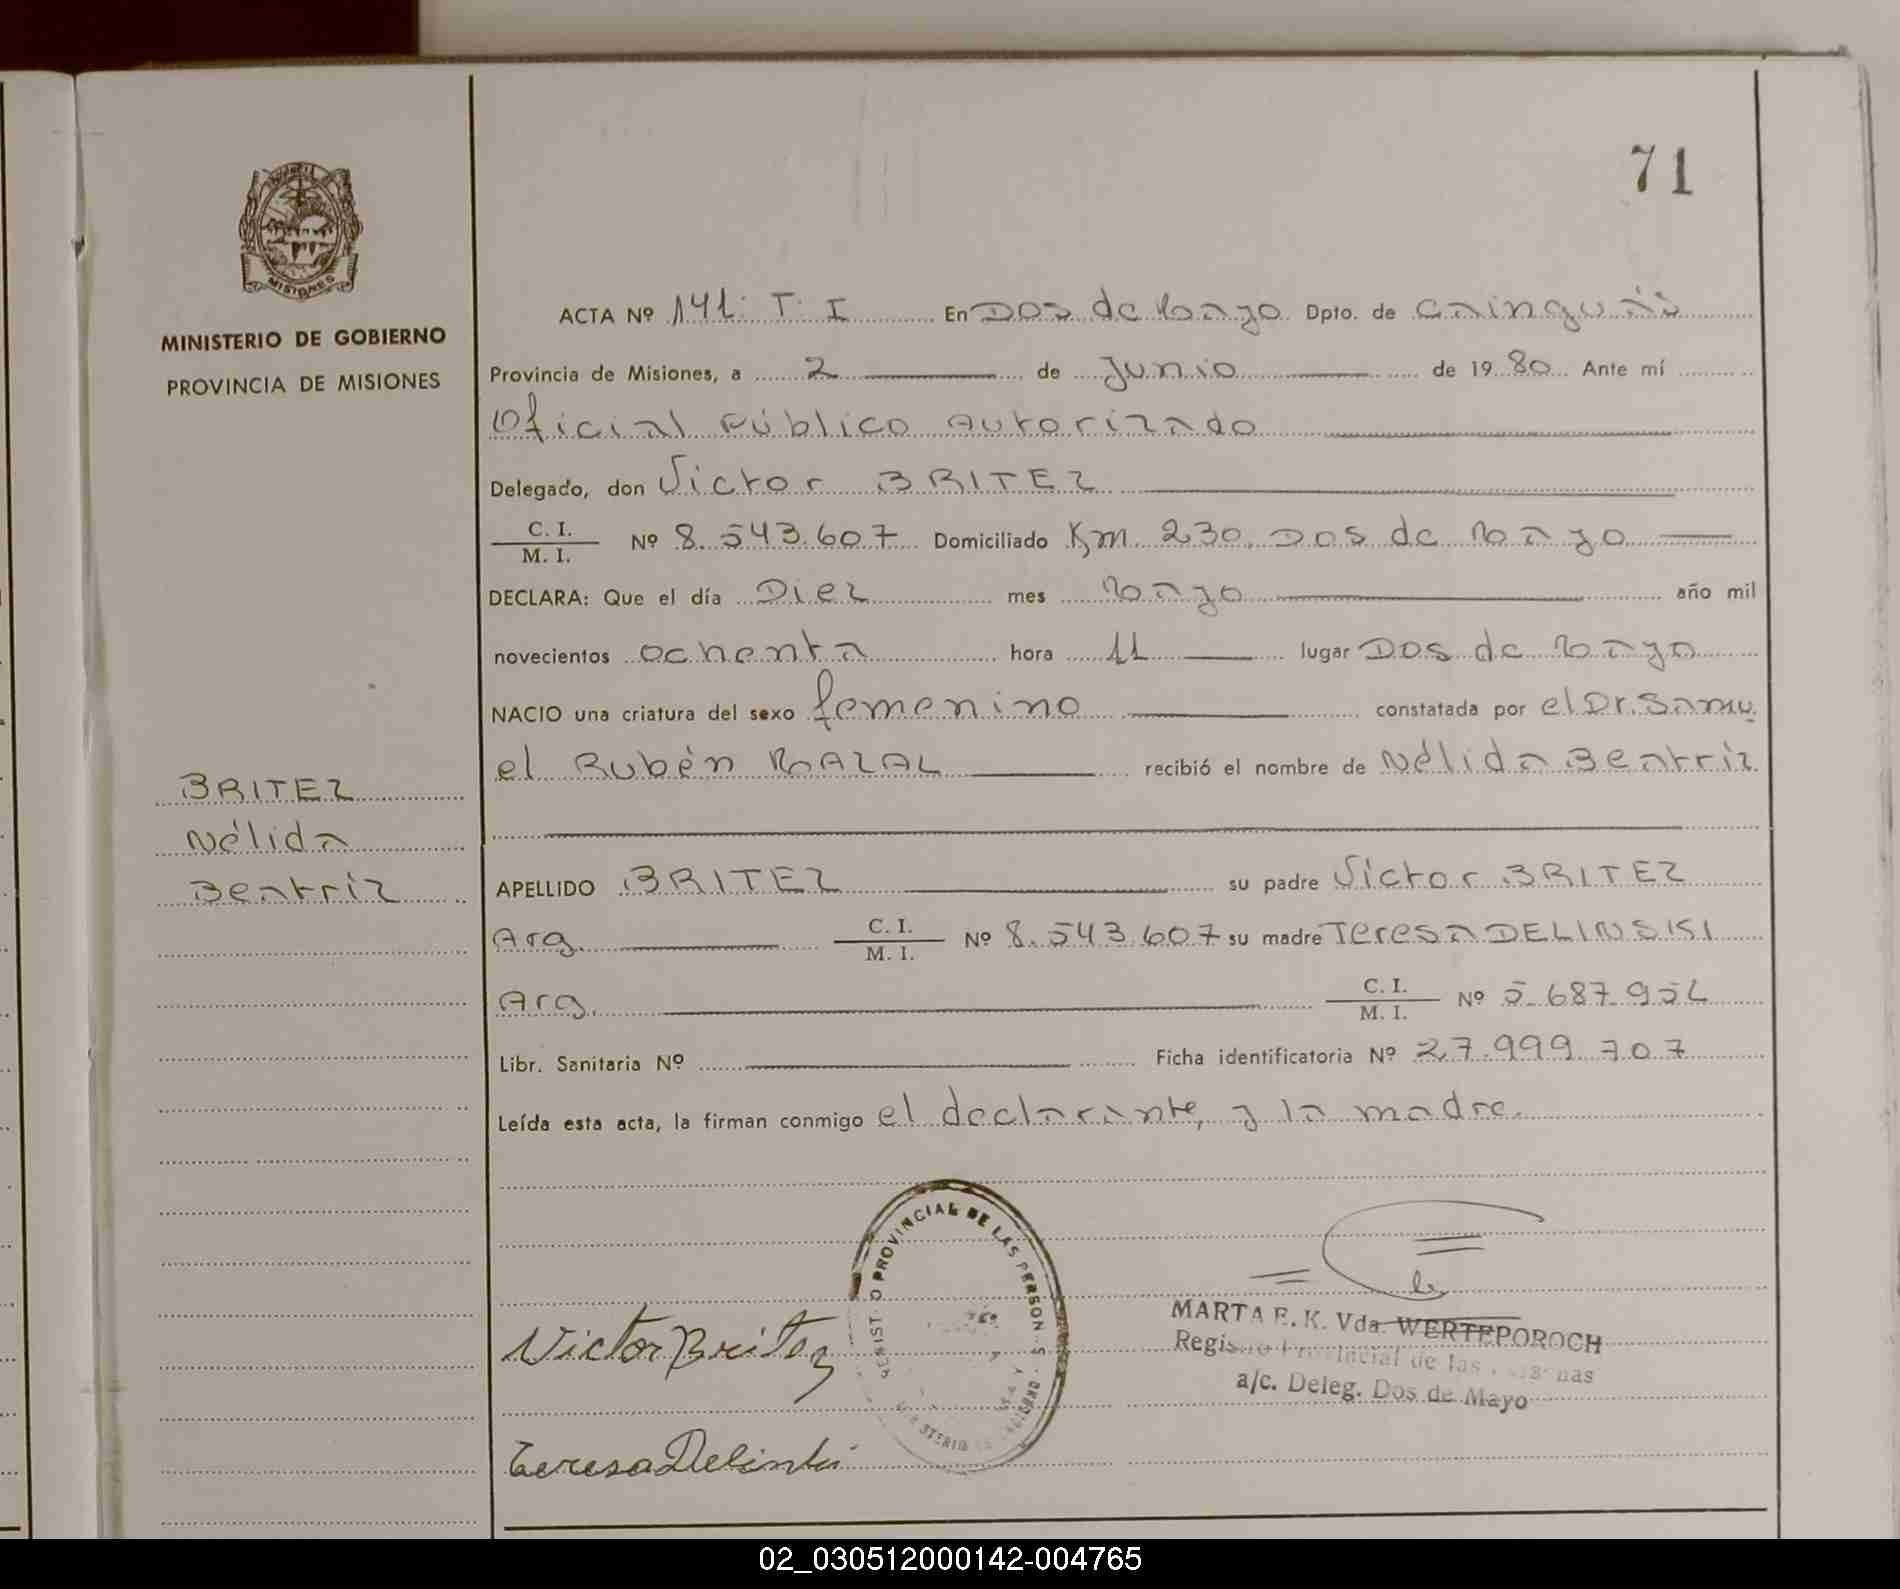 71
MISIONES
MINISTERIO DE GOBIERNO
PROVINCIA DE MISIONES
BRITEZ
Nélida
Beatriz
ACTA Nº 141. T. I En Dos de Mayo Dpto. de Cainguás
Provincia de Misiones, a 2 de Junio de 1980 Ante mí
Oficial Público Autorizado
Delegado, don Victor BRITEZ
C. I. / M. I. Nº 8.543.607 Domiciliado Km. 230. Dos de Mayo
DECLARA: Que el día Diez mes Mayo año mil
novecientos ochenta hora 11 lugar Dos de Mayo
NACIO una criatura del sexo femenino constatada por el Dr. Samu
el Rubén MAZAL recibió el nombre de Nélida Beatriz
APELLIDO BRITEZ su padre Victor BRITEZ
Arg. C. I. / M. I. Nº 8.543.607 su madre Teresa DELINSKI
Arg. C. I. / M. I. Nº 5.687.952
Libr. Sanitaria Nº Ficha identificatoria Nº 27.999.707
Leída esta acta, la firman conmigo el declarante, y la madre.
PROVINCIAL DE LAS PERSON
Victor Britez
Teresa Delinski
MARTA E. K. Vda. WERTEPOROCH
Registro Provincial de las Personas
a/c. Deleg. Dos de Mayo
02_030512000142-004765